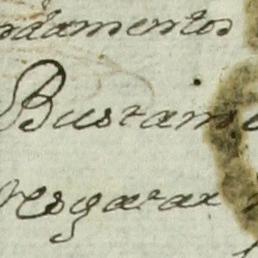 ndamentos
Bustam
resgatar